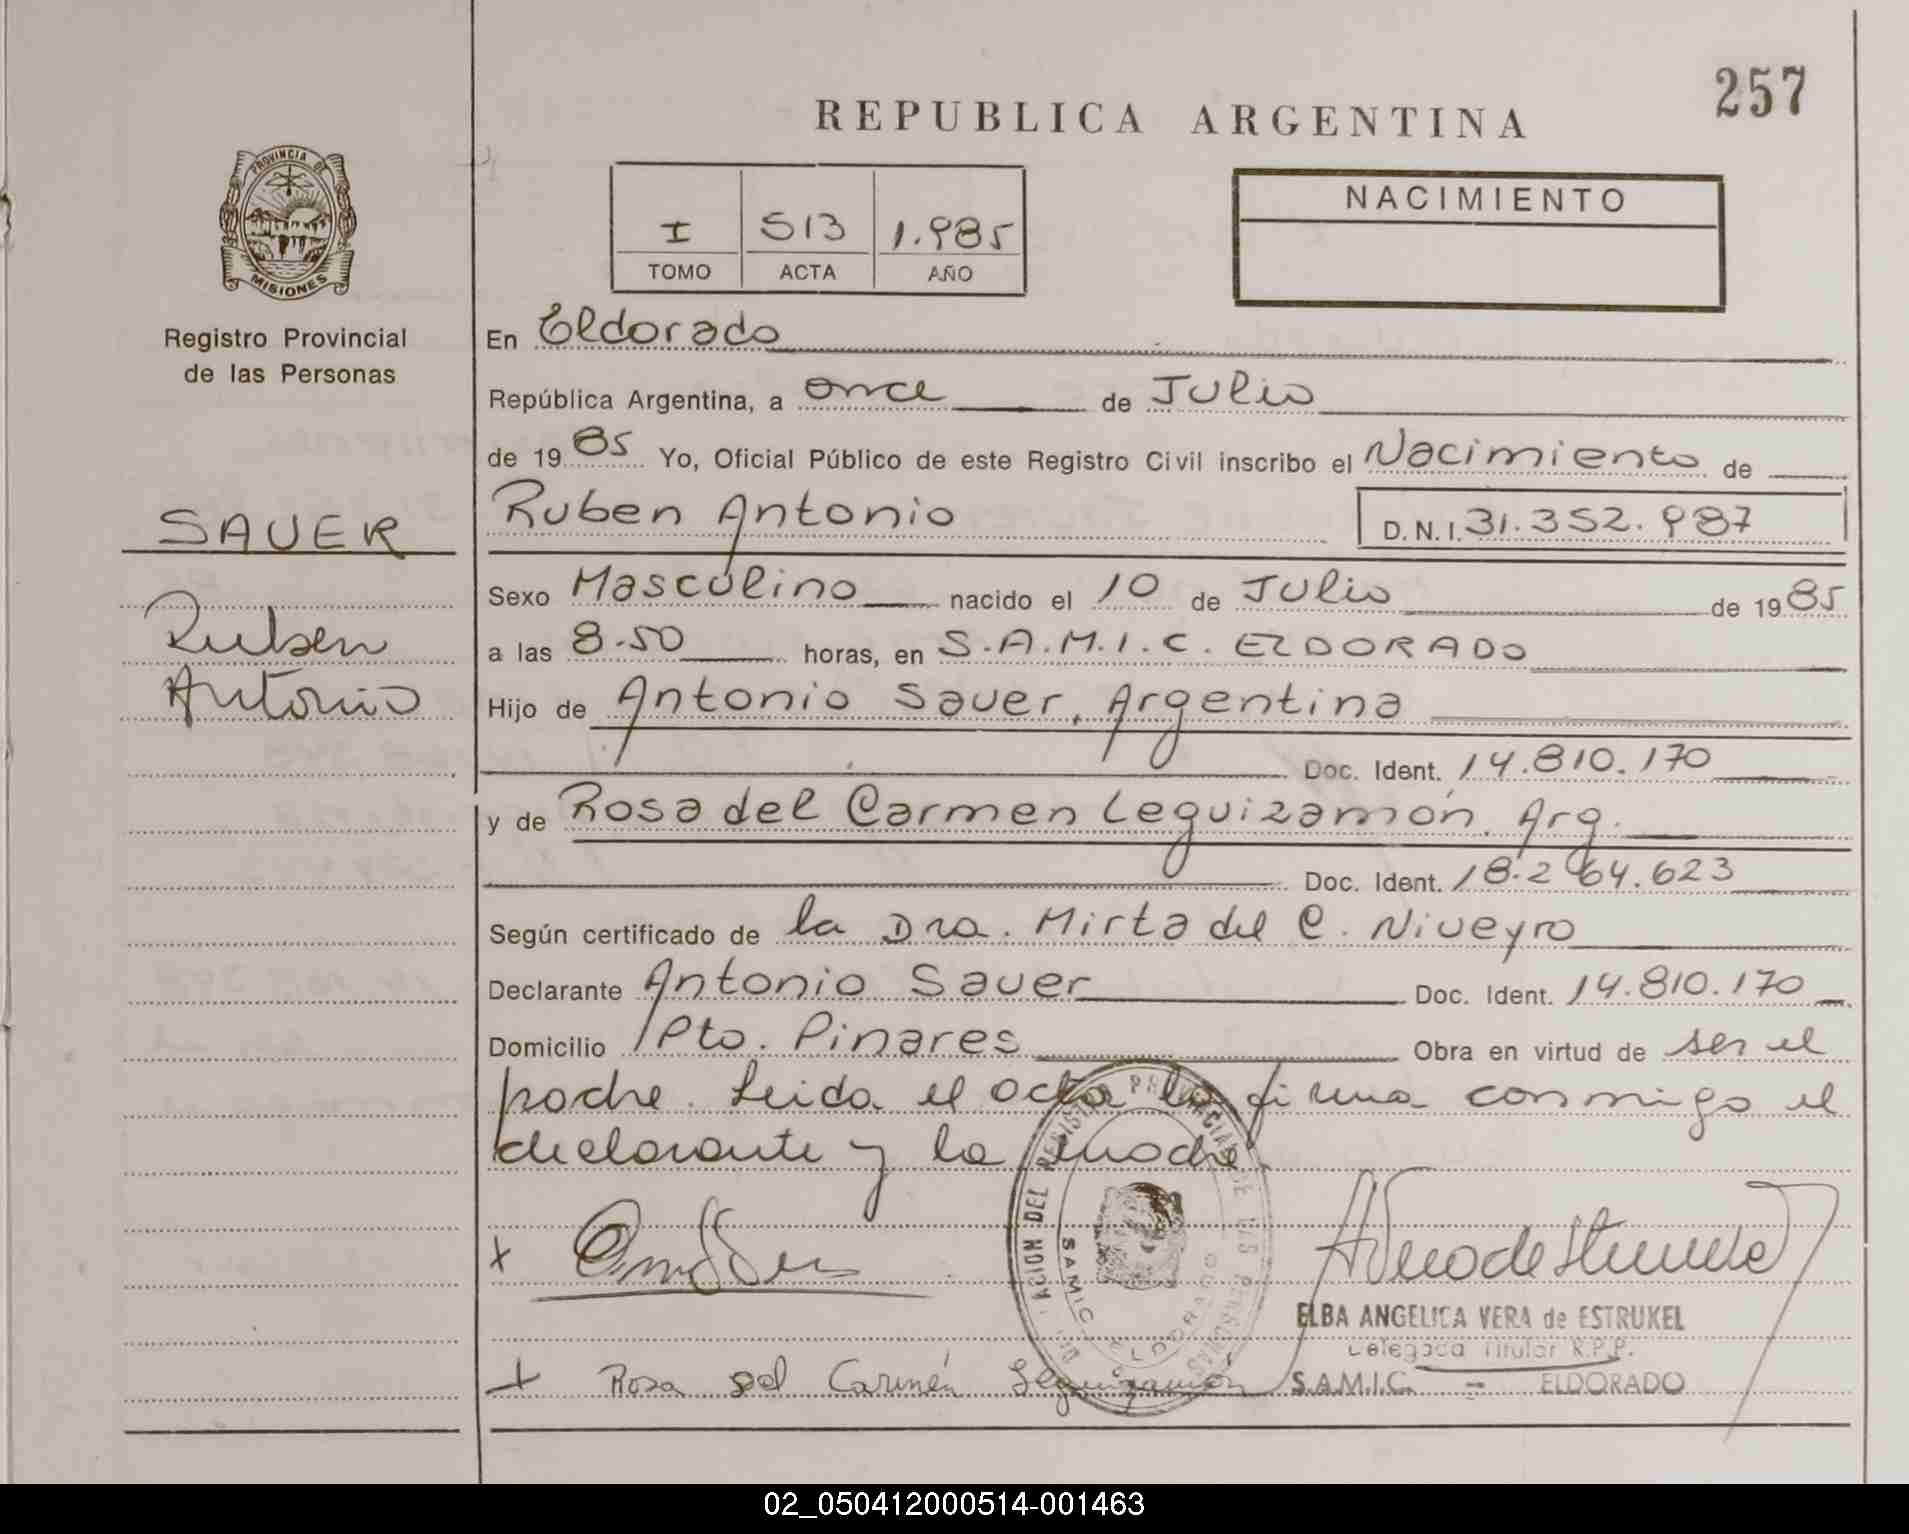 257
REPUBLICA ARGENTINA
PROVINCIA DE
MISIONES
Registro Provincial
de las Personas
I 513 1.985
TOMO ACTA AÑO
NACIMIENTO
En Eldorado
República Argentina, a once de Julio
de 1985 Yo, Oficial Público de este Registro Civil inscribo el Nacimiento de
SAUER
Ruben Antonio D.N.I. 31.352.987
Ruben
Antonio
Sexo Masculino nacido el 10 de Julio de 1985
a las 8.50 horas, en S.A.M.I.C. ELDORADO
Hijo de Antonio Sauer, Argentina
Doc. Ident. 14.810.170
y de Rosa del Carmen Leguizamón, Arg.
Doc. Ident. 18.264.623
Según certificado de la Dra. Mirta del C. Niveyro
Declarante Antonio Sauer Doc. Ident. 14.810.170
Domicilio Pto. Pinares Obra en virtud de ser el
padre. Leida el acta la firma conmigo el
declarante y la madre.
REGISTRO PROVINCIAL DE LAS PERSONAS
SAMIC ELDORADO
x
ELBA ANGELICA VERA de ESTRUKEL
Delegada Titular R.P.P.
S.A.M.I.C. - ELDORADO
x Rosa del Carmén Leguizamón
02_050412000514-001463